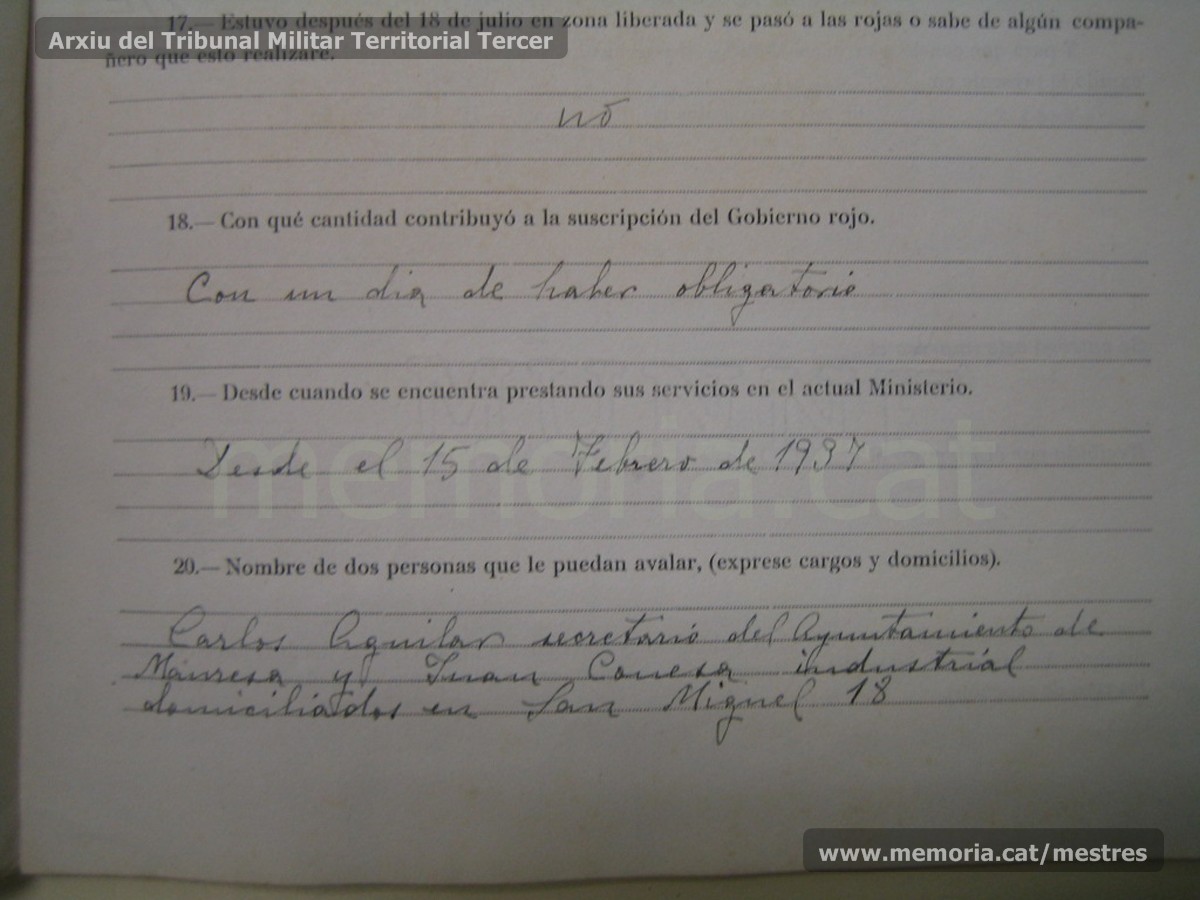 17.— Estuvo después del 18 de julio en zona liberada y se pasó a las rojas o sabe de algún compa-
Arxiu del Tribunal Militar Territorial Tercer
ñero que esto realizare.
no
18.— Con qué cantidad contribuyó a la suscripción del Gobierno rojo.
Con un dia de haber obligatorio
19.— Desde cuando se encuentra prestando sus servicios en el actual Ministerio.
Desde el 15 de Febrero de 1937
memoria.cat
20.— Nombre de dos personas que le puedan avalar, (exprese cargos y domicilios).
Carlos Aguilar secretario del Ayuntamiento de
Manresa y Juan Conesa industrial
domiciliados en San Miguel 18
www.memoria.cat/mestres